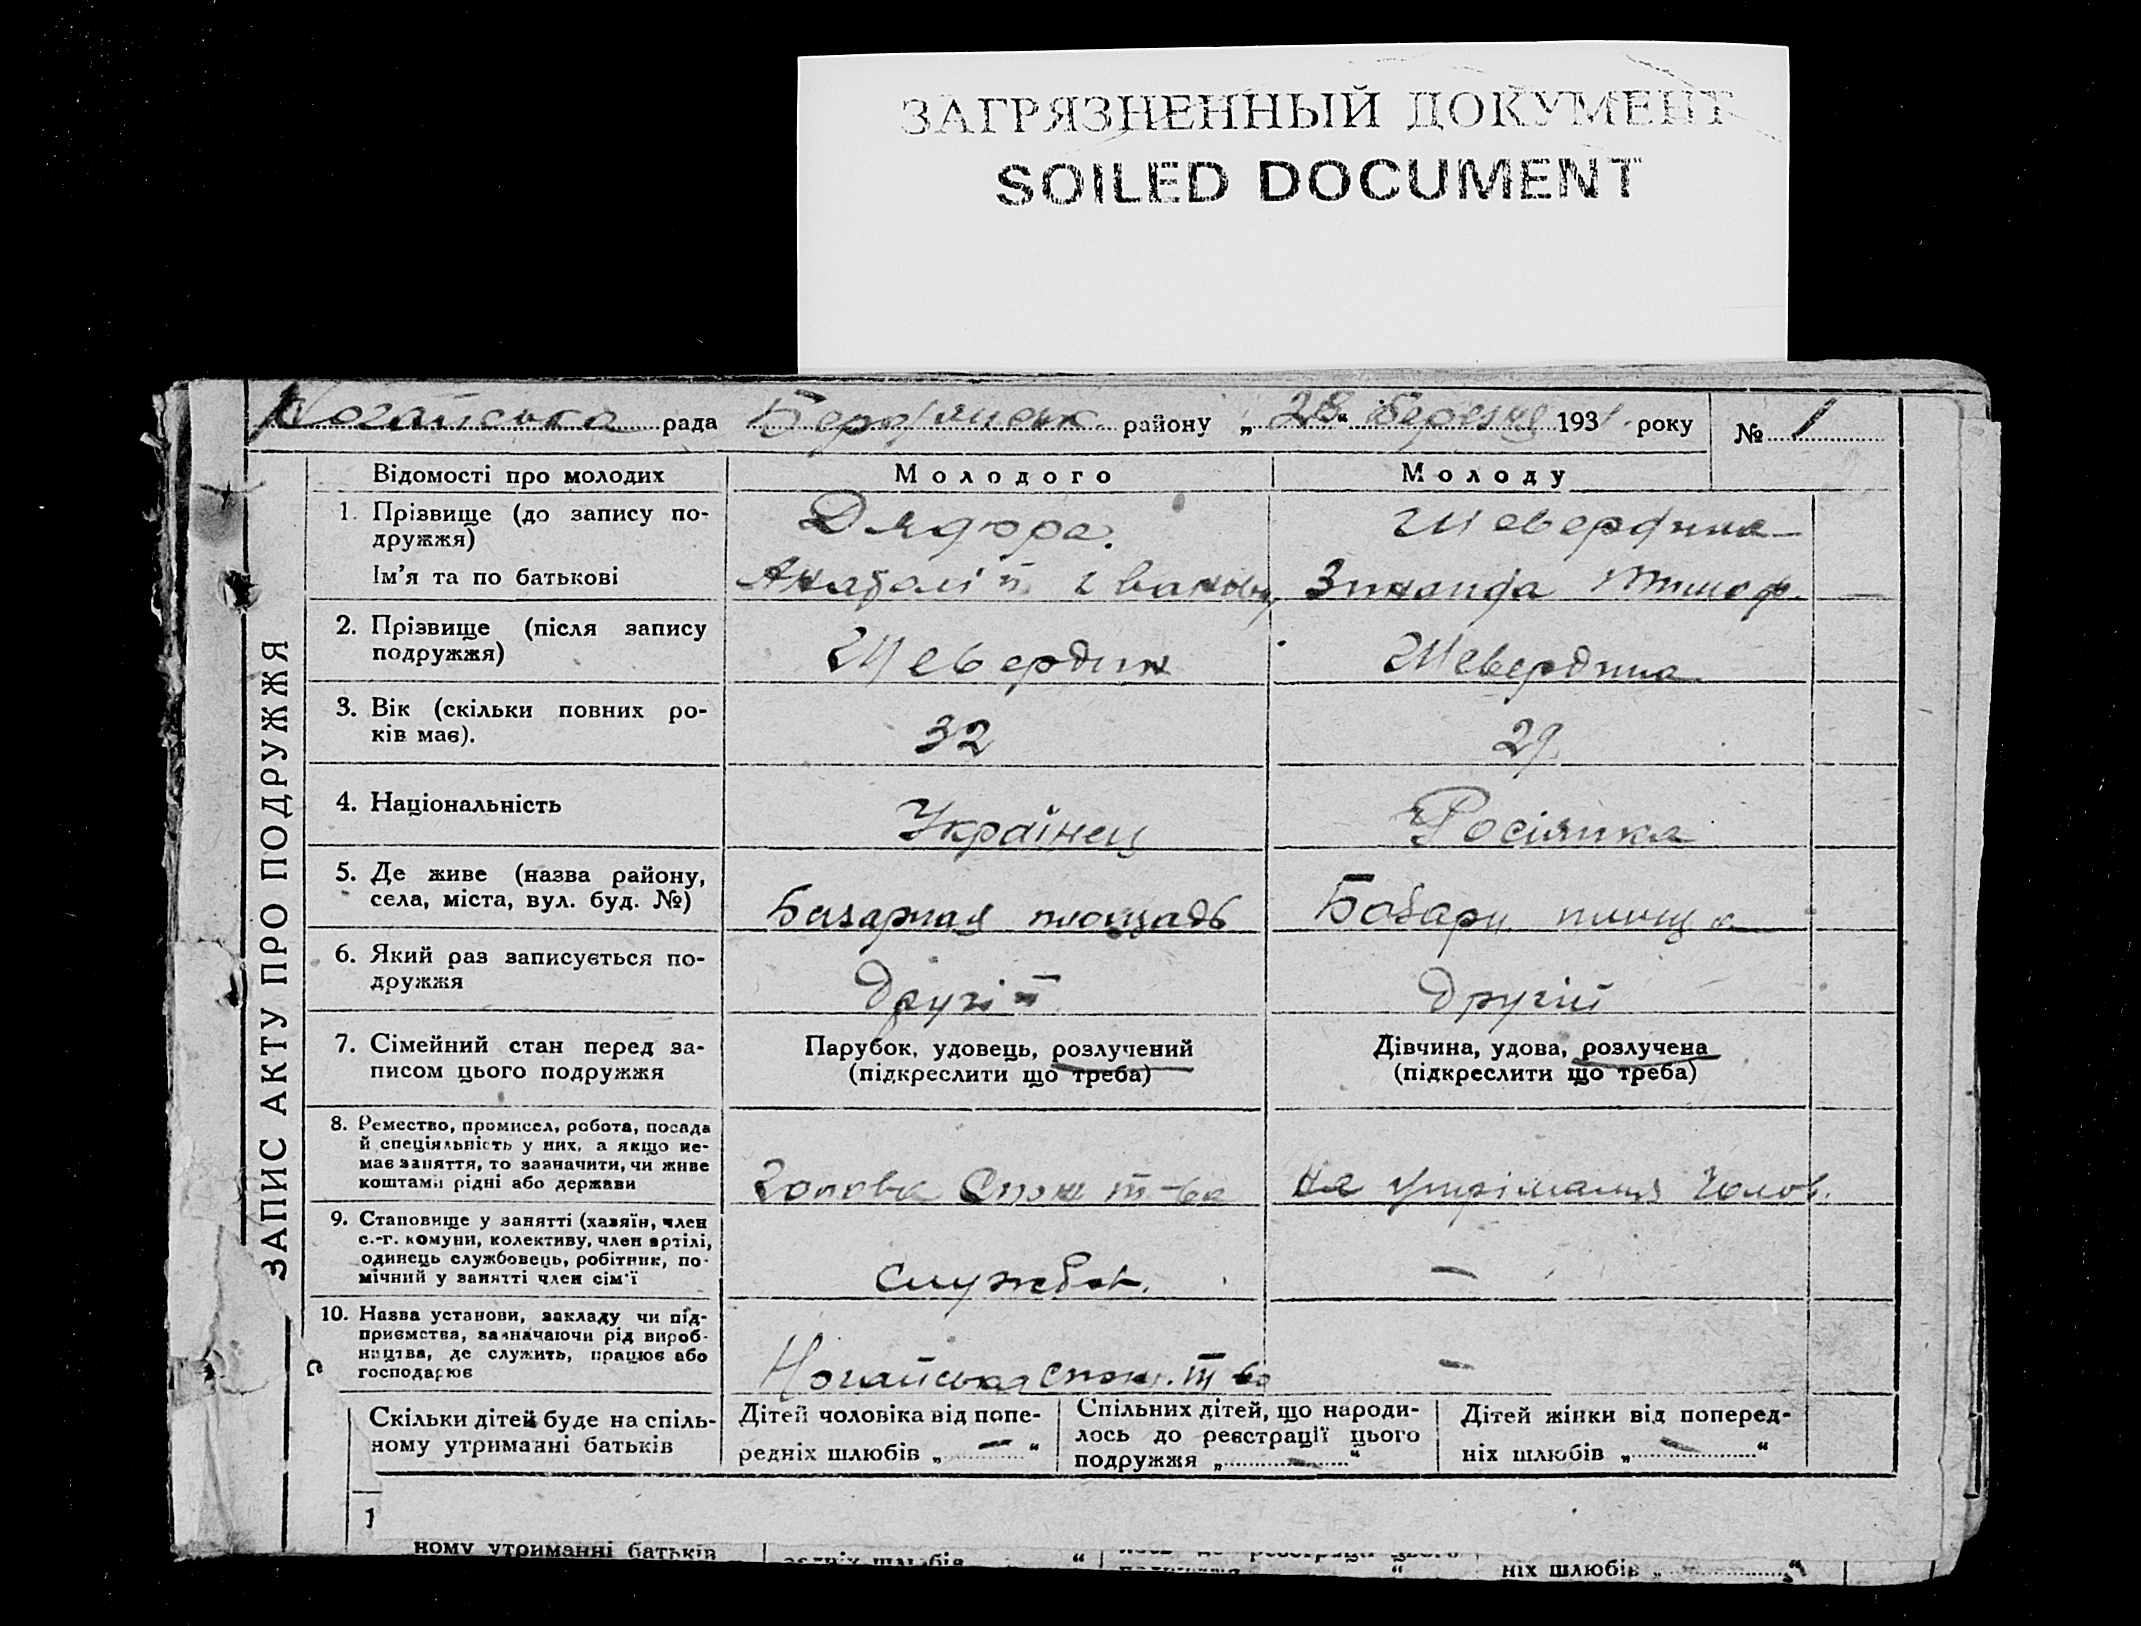 ЗАГРЯЗНЕННЫЙ ДОКУМЕНТ
SOILED DOCUMENT
Ногайська рада Бердянськ. району „28“ березня 1931 року № 1
ЗАПИС АКТУ ПРО ПОДРУЖЖЯ
Відомості про молодих Молодого Молоду
1. Прізвище (до запису по-
дружжя)
Дядюра. Шевердина
Ім'я та по батькові Анатолій Іванов Зинаида Тимоф.
2. Прізвище (після запису
подружжя)
Шевердин Шевердина
3. Вік (скільки повних ро-
ків має).
32 29
4. Національність
Українец Росіянка
5. Де живе (назва району,
села, міста, вул. буд. №)
Базарная площадь Базарн.
6. Який раз записується по-
дружжя
Другій Другій
7. Сімейний стан перед за-
писом цього подружжя
Парубок, удовець, розлучений
(підкреслити що треба)
Дівчина, удова, розлучена
(підкреслити що треба)
8. Ремество, промисел, робота, посада
й спеціяльність у них, а якщо не-
має заняття, то зазначити, чи живе
коштами рідні або держави
Голова Спож т-ва На утрімання Чолов.
9. Становище у занятті (хазяїн, член
с.-г. комуни, колективу, член артілі,
одинець службовець, робітник, по-
мічний у занятті член сім'ї
службов. —
10. Назва установи, закладу чи під-
приємства, зазначаючи рід вироб-
ництва, де служить, працює або
господарює
Ногайская спож. т-ва —
Скільки дітей буде на спіль-
ному утриманні батьків
Дітей чоловіка від попе-
редніх шлюбів „ — “
Спільних дітей, що народи-
лось до реєстрації цього
подружжя „ — “
Дітей жінки від поперед-
ніх шлюбів „ — “
1
ному утриманні батьків
ніх шлюбів „ “